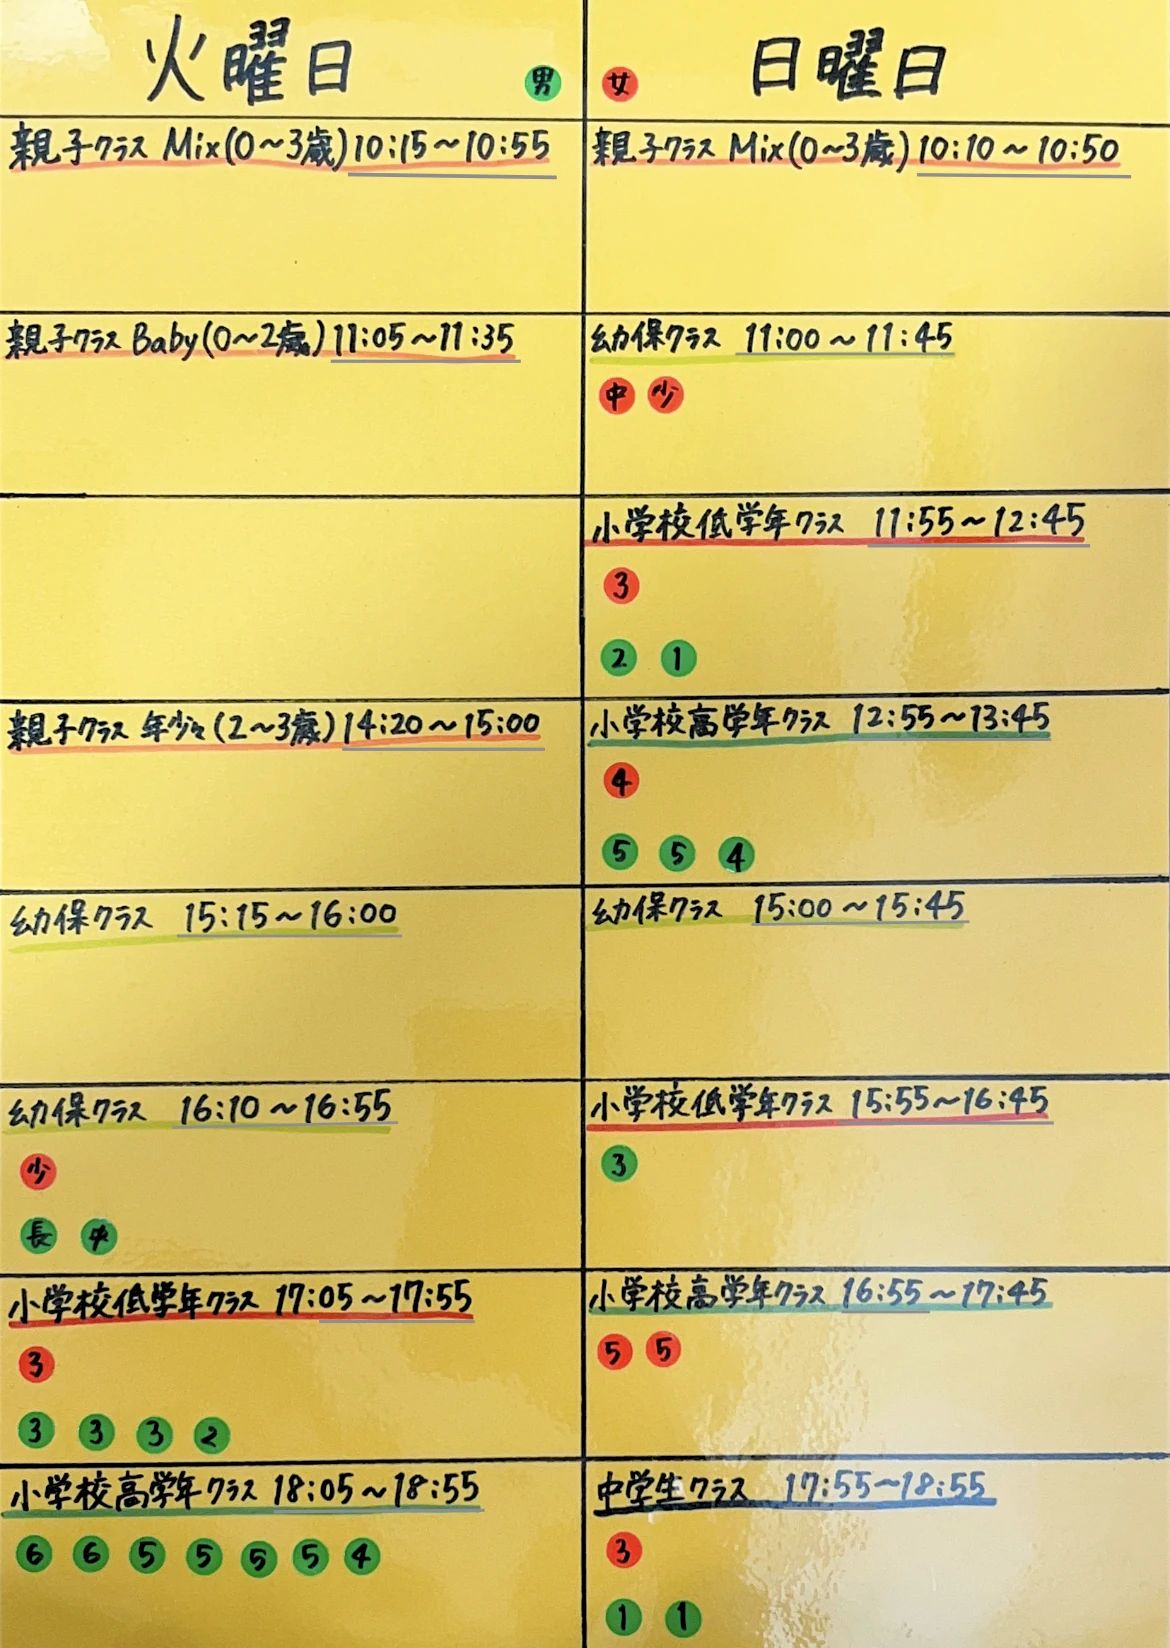 火曜日 男
親子クラス Mix(0〜3歳)10:15〜10:55
親子クラス Baby(0〜2歳)11:05〜11:35
親子クラス 年少々(2〜3歳)14:20〜15:00
幼保クラス 15:15〜16:00
幼保クラス 16:10〜16:55
少
長 中
小学校低学年クラス 17:05〜17:55
3
3 3 3 2
小学校高学年クラス 18:05〜18:55
6 6 5 5 5 5 4
女 日曜日
親子クラス Mix(0〜3歳)10:10〜10:50
幼保クラス 11:00〜11:45
中 少
小学校低学年クラス 11:55〜12:45
3
2 1
小学校高学年クラス 12:55〜13:45
4
5 5 4
幼保クラス 15:00〜15:45
小学校低学年クラス 15:55〜16:45
3
小学校高学年クラス 16:55〜17:45
5 5
中学生クラス 17:55〜18:55
3
1 1